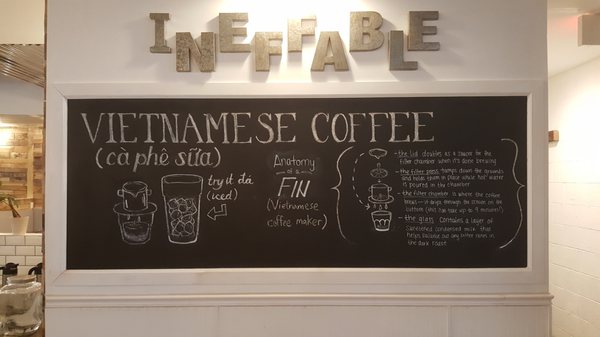 INEFFABLE
VIETNAMESE COFFEE
(cà phê sữa)
try it đá
(iced)
Anatomy
of a
FIN
(Vietnamese
coffee maker)
- the lid doubles as a saucer for the
filter chamber when it's done brewing
- the filter press tamps down the grounds
and holds them in place while hot water
is poured in the chamber
- the filter chamber is where the coffee
brews - it drips through the screen on the
bottom (this can take up to 9 minutes!)
- the glass contains a layer of
sweetened condensed milk that
helps balance out any bitter notes in
the dark roast